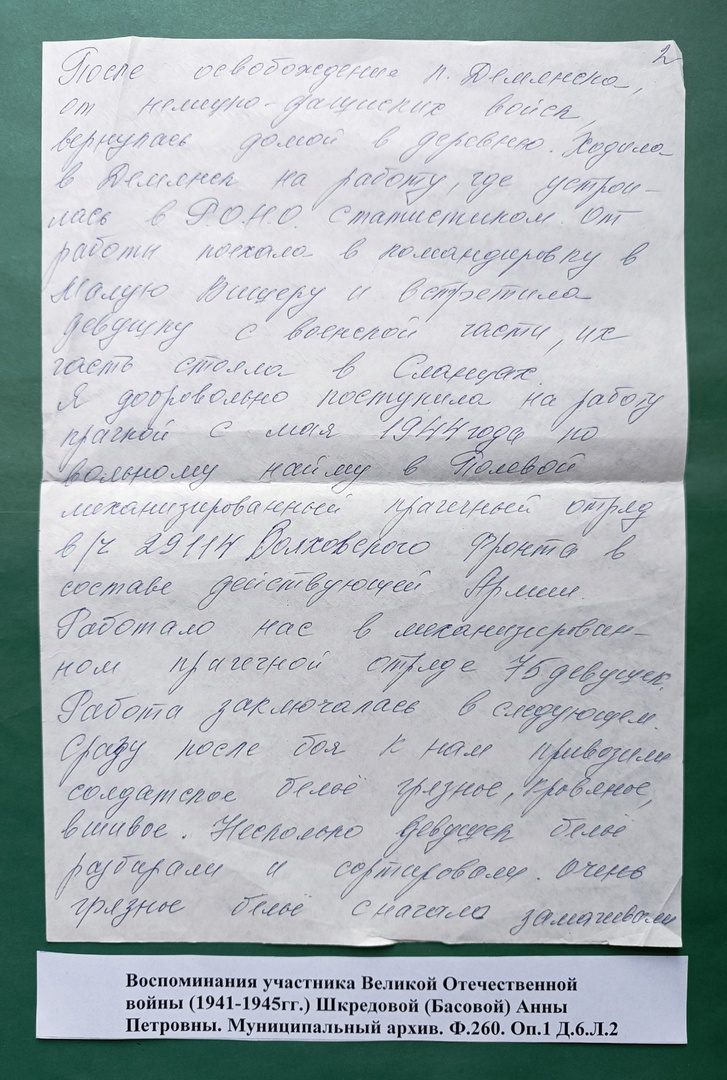 2
После освобождения п. Демянска,
от немецко-фашиских войск,
вернулась домой в деревню. Ходила
в Демянск на работу, где устрои-
лась в Р.О.Н.О. статистиком. От
работы поехала в командировку в
Малую Вишеру и встретила
девушку с военской части, их
часть стояла в Сланцах.
Я добровольно поступила на работу
прачкой с мая 1944 года по
вольному найму в Полевой
механизированный прачечный отряд
в/ч 29114 Волховского Фронта в
составе действующей Армии.
Работало нас в механизирован-
ном прачечной отряде 75 девушек.
Работа заключалась в следующем.
Сразу после боя к нам привозили
солдатское бельё грязное, кровяное,
вшивое. Несколько девушек бельё
разбирали и сортировали. Очень
грязное бельё сначала замачивали
Воспоминания участника Великой Отечественной
войны (1941-1945гг.) Шкредовой (Басовой) Анны
Петровны. Муниципальный архив. Ф.260. Оп.1 Д.6.Л.2